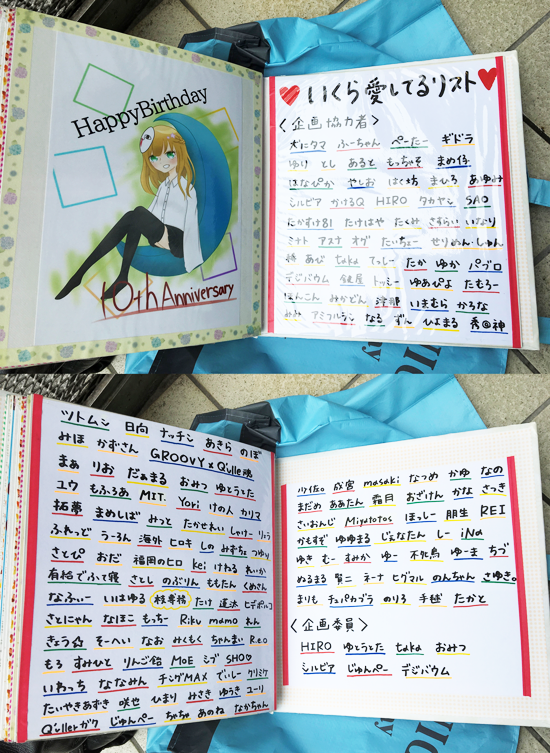 HappyBirthday
10th Anniversary
いくら愛してるリスト
〈企画協力者〉
犬にタマ ふーちゃん ぺーたー ギドラ
ゆけ とし あると もっちゃそ まめ仔
はなぴか やしお はく坊 まひろ あゆみ
シルビア かけるQ HIRO タカヤン SAO
にかすけ81 たけはや たくみ さすらい いなり
ミナト アスナ オグ たいちょー せりめん・しゅん
柿 あび taka てっしー たか ゆか パブロ
デジバウム 鉄屋 トッシー ゆあぴよ たむろー
ほんこん みかどん 津那 いまむら かろな
みみ アミフルラン なる ずん ひよまる 秀@神
ツトムシ 日向 ナッチン あきら のぽ
みほ かずさん GROOVY×Q'ulle魂
まぁ りお だぁまる おみつ ゆとうた
ユウ もふろあ MIT. Yori けの人 カリマ
拓夢 まめしば みっと たかせれい しゃけー リょう
ふれっど うーろん 海外 ヒロキ しの みずちぇ つゆり
さとぴ おだ 福岡のヒロ kei けわる れいか
有給でふて寝 さとし のぶりん ももたん くめさん
なふぃー いしはゆる 桂専務 たけ 遼汰 ヒデポルコ
さとにゃん なほこ もっちー Riku mamo れん
きょう凸 そーへい なお みくもく ちゃんまい R.e.O
もろ すみひと りんご飴 MOE ミヅ SHO♡
いわっち ななみん チシグMAX でぃし クリミケ
たいやきあずき 咲也 ひまり みさき ゆうき ユーリ
Q'ullerガク じゅんぺー ちゃちゃ あのね なかちゃん
少佐。 成宮 masaki なつめ かゆ なの
まだめ ああたん 霜月 おざけん かな さっき
さいおんじ Miyatotos ほっしー 朋生 REI
かもすず ゆゆまる じょなたん しー iNa
ゆき むー すみか ゆー 不死鳥 ゆーま ちづ
ぬるまる 賢二 ネーナ ヒグマル のんちゃん さゆき。
まりも チュパカブラ のりろ 手毬 たかと
〈企画委員〉
HIRO ゆとうとた taka おみつ
シルビア じゅんぺー デジバウム